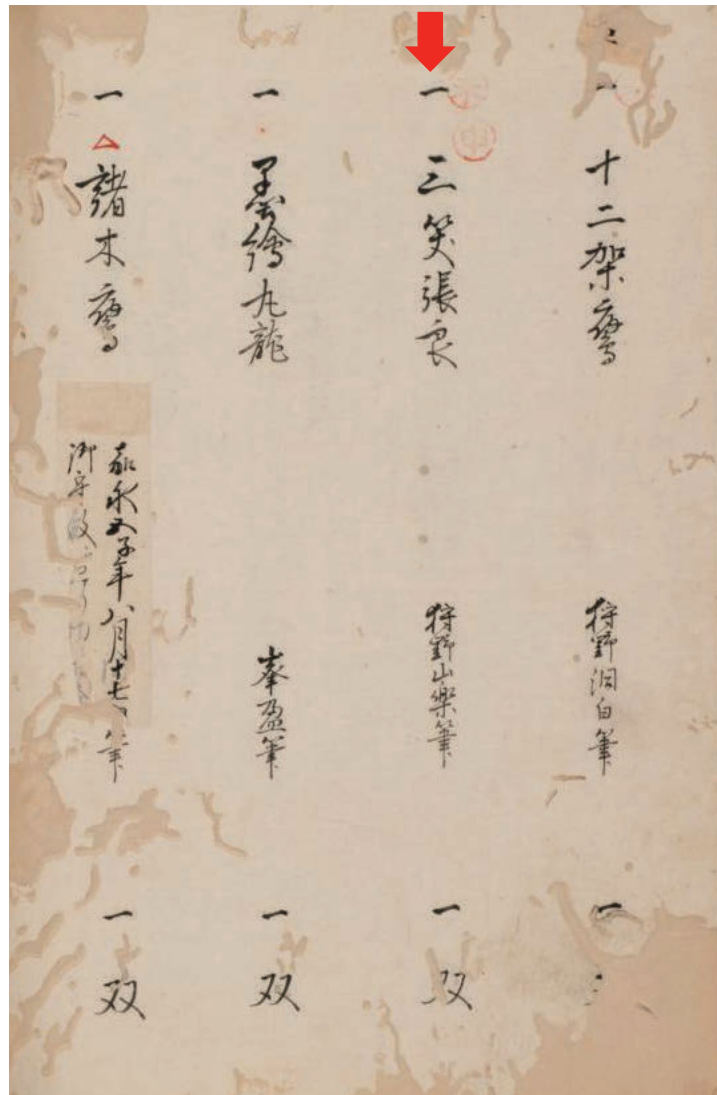 一 十二架鷹 狩野洞白筆 一
一 三笑張良 狩野山楽筆 一双
一 墨繪九龍 峯盈筆 一双
一 諸木鷹 筆 一双
嘉永五子年八月十七
御守殿